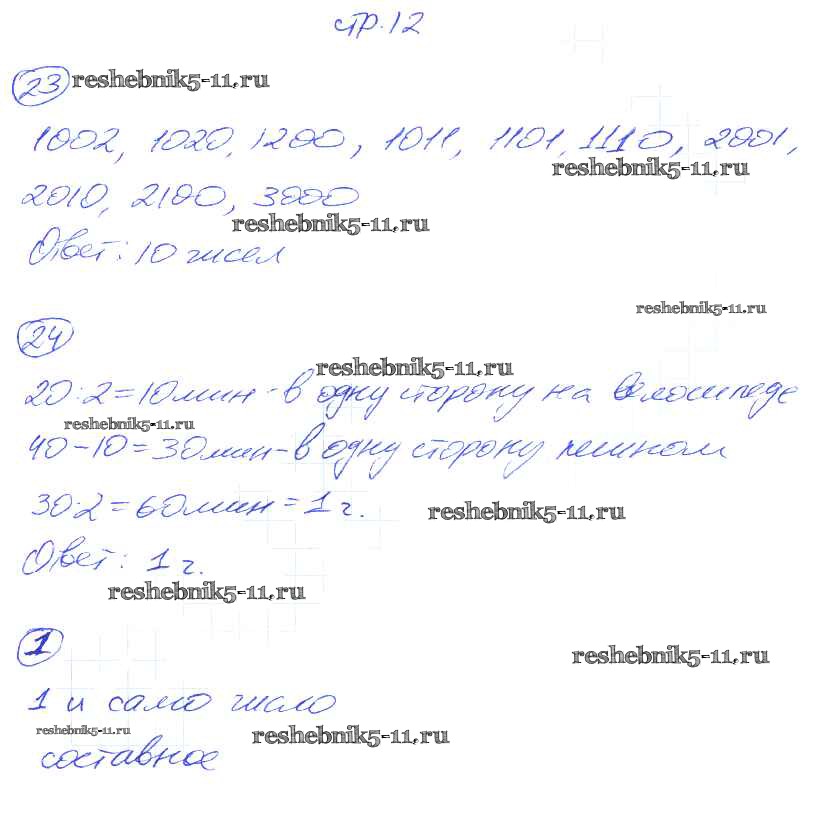 стр. 12
23 reshebnik5-11.ru
1002, 1020, 1200, 1011, 1101, 1110, 2001,
reshebnik5-11.ru
2010, 2100, 3000
reshebnik5-11.ru
Ответ: 10 чисел
reshebnik5-11.ru
24
reshebnik5-11.ru
20:2=10мин - в одну сторону на велосипеде
reshebnik5-11.ru
40-10=30мин - в одну сторону пешком
30·2=60мин=1 ч.
reshebnik5-11.ru
Ответ: 1 ч.
reshebnik5-11.ru
1
reshebnik5-11.ru
1 и само число
reshebnik5-11.ru
reshebnik5-11.ru
составное